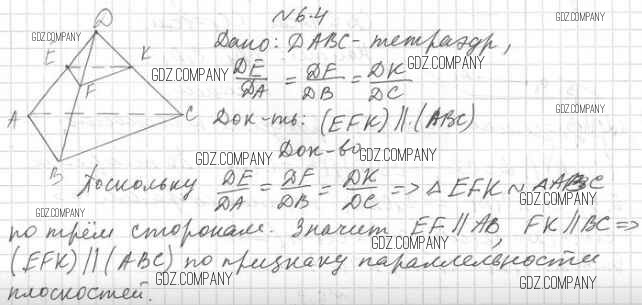 №6.4
D
GDZ.COMPANY
Дано: DABC - тетраэдр,
E K
GDZ.COMPANY
DE/DA = DF/DB = DK/DC
GDZ.COMPANY
GDZ.COMPANY
F
A C
Док-ть: (EFK) || (ABC)
B
GDZ.COMPANY
Док-во
Поскольку DE/DA = DF/DB = DK/DC => △ EFK ~ △ABC
GDZ.COMPANY
GDZ.COMPANY
по трём сторонам. Значит EF || AB, FK || BC =>
GDZ.COMPANY
(EFK) || (ABC) по признаку параллельности
GDZ.COMPANY
GDZ.COMPANY
плоскостей.